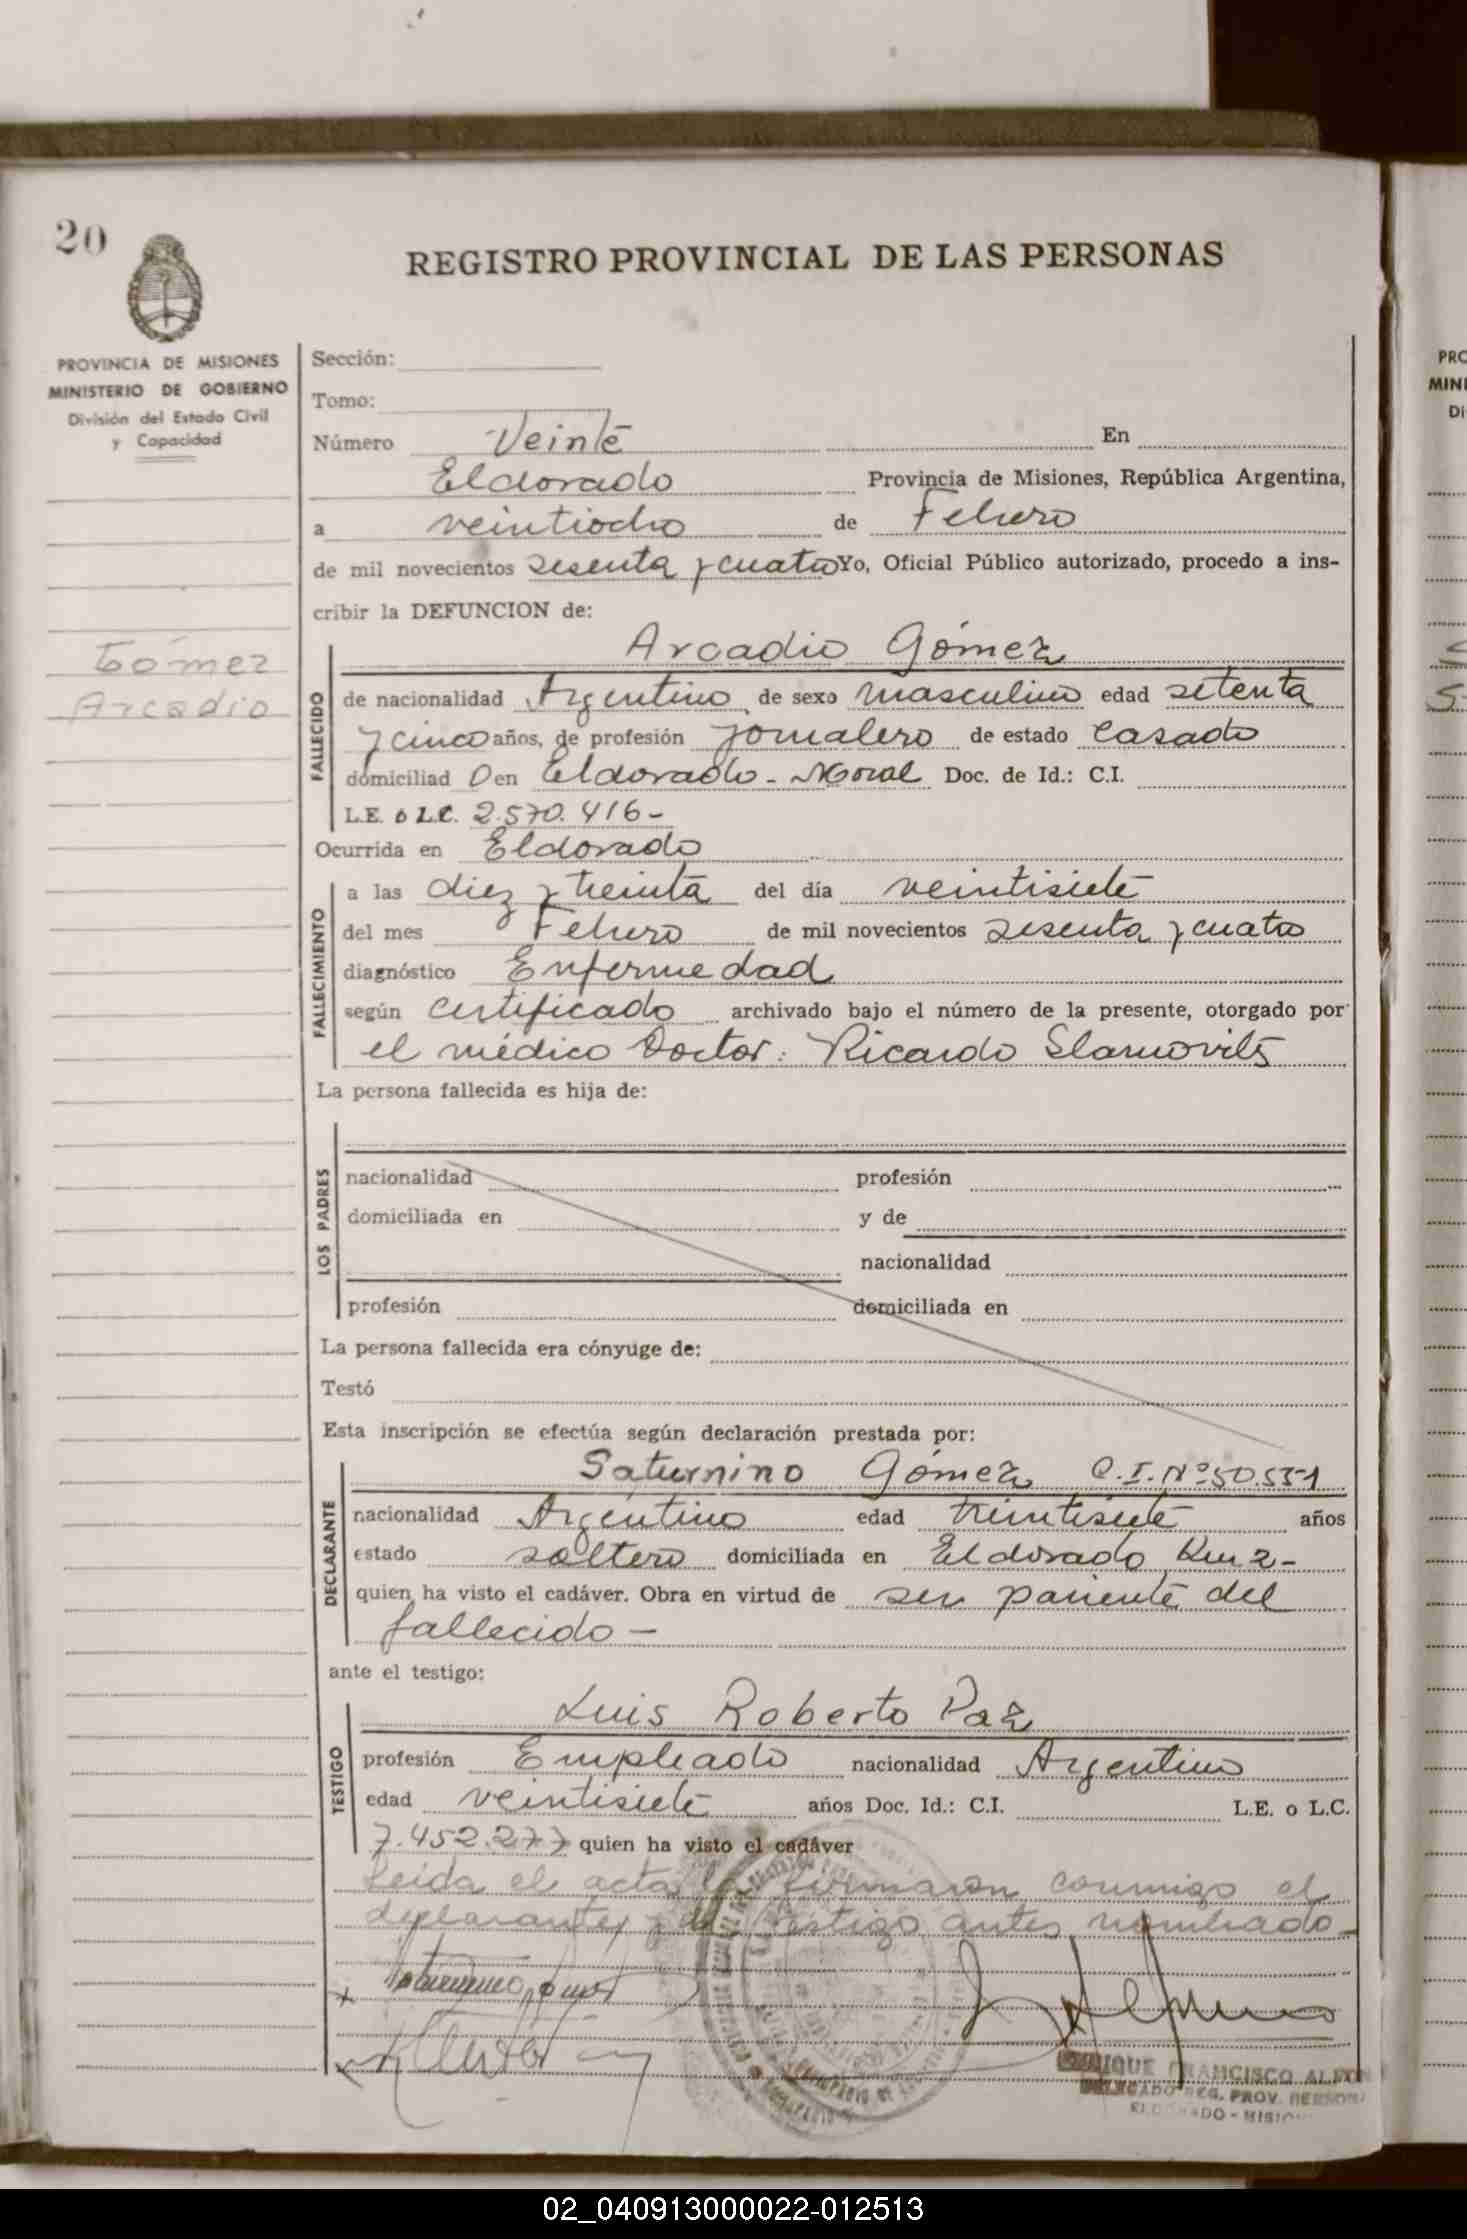 20
REGISTRO PROVINCIAL DE LAS PERSONAS
PROVINCIA DE MISIONES
MINISTERIO DE GOBIERNO
División del Estado Civil
y Capacidad
Gómez
Arcadio
Sección:
Tomo:
Número Veinte En
Eldorado Provincia de Misiones, República Argentina,
a veintiocho de Febrero
de mil novecientos sesenta y cuatro Yo, Oficial Público autorizado, procedo a ins-
cribir la DEFUNCION de:
FALLECIDO
Arcadio Gómez
de nacionalidad Argentino de sexo masculino edad setenta
y cinco años, de profesión Jornalero de estado Casado
domiciliad o en Eldorado - Doc. de Id.: C.I.
L.E. o L.C. 2.570.416-
Ocurrida en Eldorado
FALLECIMIENTO
a las diez y treinta del día veintisiete
del mes Febrero de mil novecientos sesenta y cuatro
diagnóstico Enfermedad
según certificado archivado bajo el número de la presente, otorgado por
el médico Doctor: Ricardo
La persona fallecida es hija de:
LOS PADRES
nacionalidad profesión
domiciliada en y de
nacionalidad
profesión domiciliada en
La persona fallecida era cónyuge de:
Testó
Esta inscripción se efectúa según declaración prestada por:
DECLARANTE
Saturnino Gómez C.I. Nº 50.551
nacionalidad Argentino edad treintisiete años
estado soltero domiciliada en Eldorado Km 2-
quien ha visto el cadáver. Obra en virtud de ser pariente del
fallecido -
ante el testigo:
TESTIGO
Luis Roberto Paz
profesión Empleado nacionalidad Argentino
edad veintisiete años Doc. Id.: C.I. L.E. o L.C.
7.452.277 quien ha visto el cadáver
Leida el acta la firmaron conmigo el
declarante y el testigo antes nombrado-
FRANCISCO
DELEGADO REG. PROV. PERSON
ELDORADO - MISION
PRO
MINI
Di
02_040913000022-012513